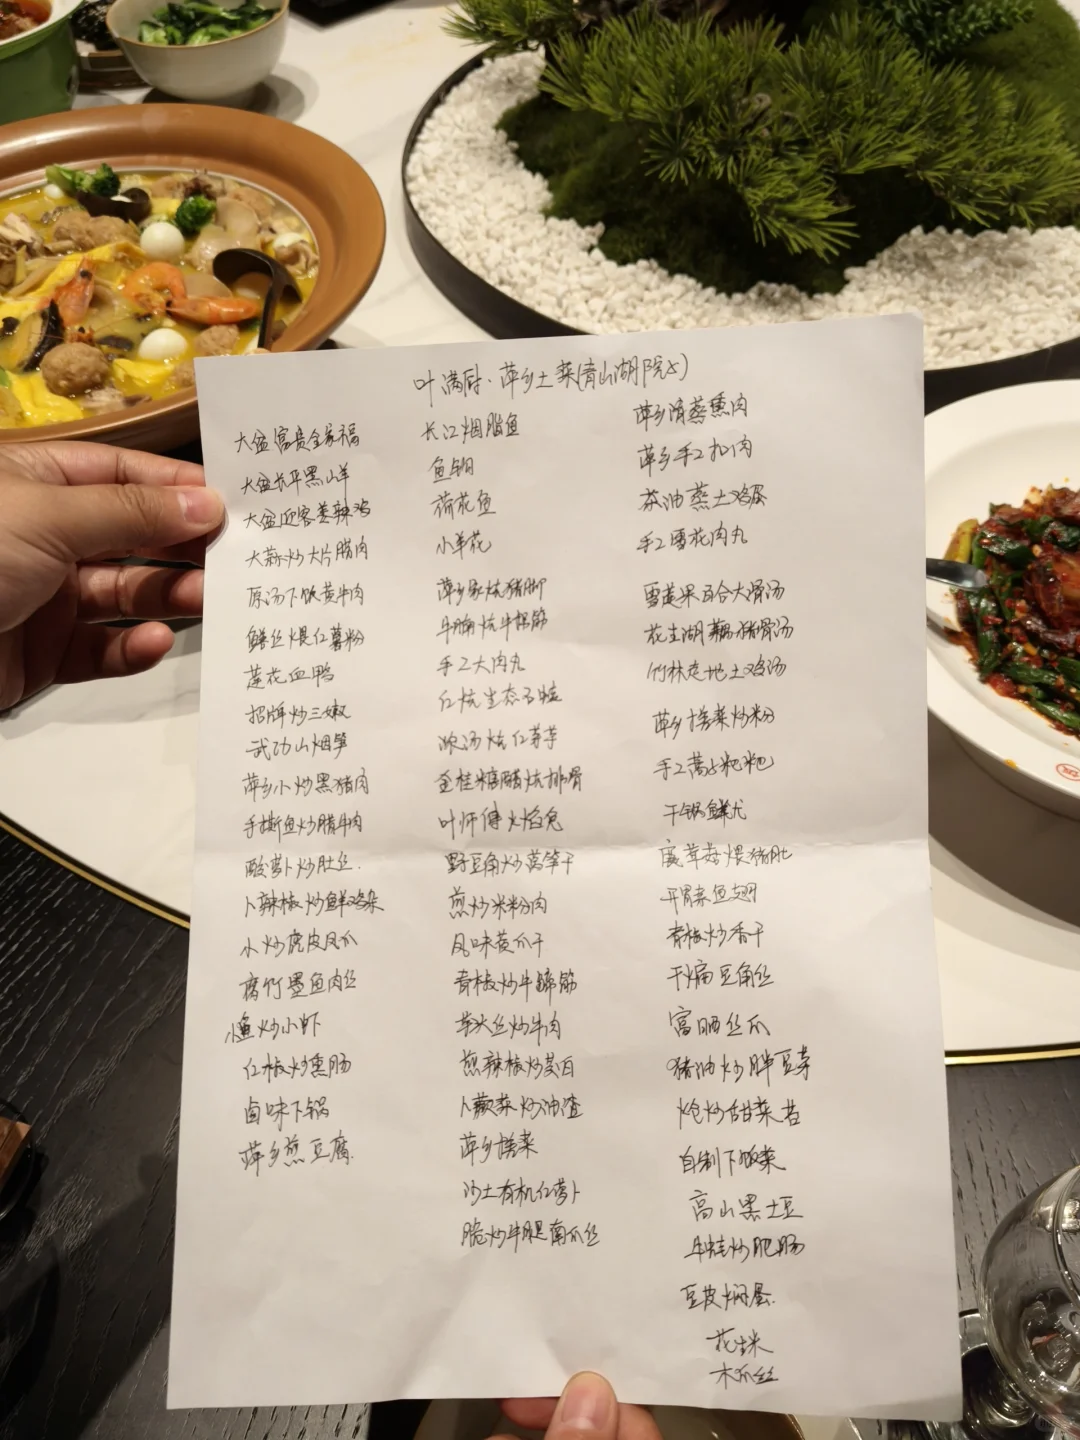 叶满厨·萍乡土菜(青山湖院子)
大盆富贵全家福
大盆长平黑山羊
大盆迎客姜辣鸡
大蒜炒大片腊肉
原汤下饭黄牛肉
鳝丝煨红薯粉
莲花血鸭
招牌炒三嫩
武功山烟笋
萍乡小炒黑猪肉
手撕鱼炒腊牛肉
酸萝卜炒肚丝
卜辣椒炒鲜鸡杂
小炒虎皮凤爪
腐竹墨鱼肉丝
小鱼炒小虾
红椒炒熏肠
卤味下锅
萍乡煎豆腐
长江烟脂鱼
鱼
荷花鱼
小羊花
萍乡家炖猪脚
牛腩炖牛根筋
手工大肉丸
红炖生态石蛙
浓汤炖红芽芋
金桂糯醋炖排骨
叶师傅火焰兔
野豆角炒莴笋干
煎炒米粉肉
风味黄瓜干
青椒炒牛蹄筋
芋头丝炒牛肉
煎辣椒炒茭白
卜蕨菜炒油渣
萍乡搓菜
沙土有机红萝卜
脆炒牛腿南瓜丝
萍乡清蒸熏肉
萍乡手工扣肉
茶油蒸土鸡蛋
手工雪花肉丸
雪莲果百合大骨汤
花生湖藕猪骨汤
竹林走地土鸡汤
萍乡搓菜炒粉
手工蒿子粑粑
干锅鲜尤
鹿茸菇煨猪肚
开胃素鱼翅
青椒炒香干
干煸豆角丝
富晒丝瓜
猪油炒胖豆芽
炝炒甜菜苔
自制下饭菜
高山黑土豆
牛蛙炒肥肠
豆皮焖蛋
花生米
木瓜丝